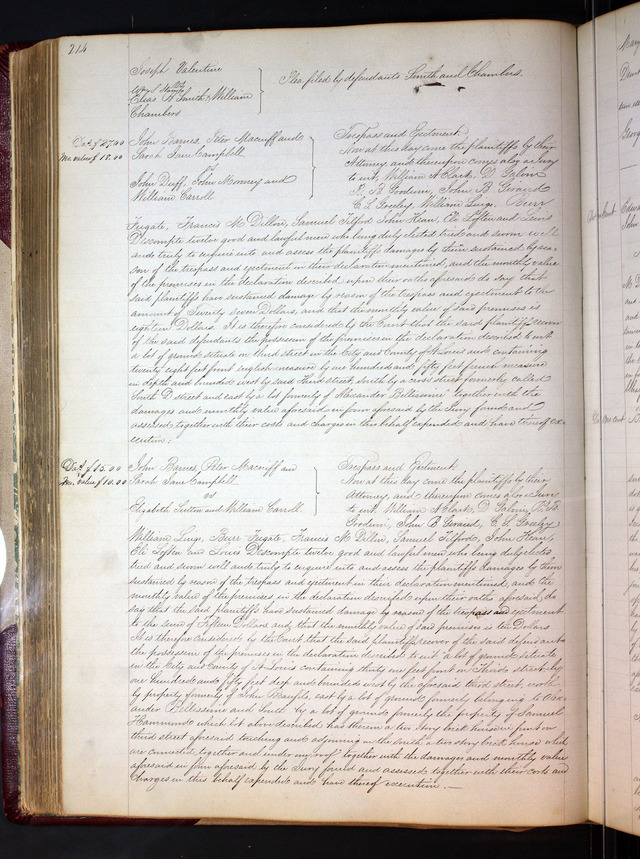 214
Joseph Valentine
vs
Elias B Smith, William
Chambers
Plea filed by defendants Smith and Chambers.
Da.s $27.00
Mo. value $18.00
John Barnes, Peter Macniff and
Sarah Jane Campbell
vs
John Duff, John Mooney and
William Carroll
Trespass and Ejectment
Now at this day come the plaintiffs by their
Attorney and thereupon comes also a Jury
to wit, William A Clark, D
B Goodwin, John B Geraud
C L Goxley, William Luigs, Burr
Fugate, Francis M Dillon, Samuel Tilford John Hear, Eli Loften and Louis
Discompte twelve good and lawful men who being duly elected tried and sworn well
and truly to enquire into and assess the plaintiffs damages by them sustained by rea-
son of the trespass and ejectment in their declaration mentioned, and the monthly value
of the premises in the declaration described upon their oaths aforesaid do say that
said plaintiffs have sustained damage by reason of the trespass and ejectment to the
amount of Twenty seven Dollars, and that the monthly value of said premises is
eighteen Dollars. It is therefore considered by the Court that the said plaintiffs recover
of the said defendants the possession of the premises in the declaration described to wit
a lot of ground situate on Third street in the City and County of St Louis and containing
twenty eight feet front english measure by one hundred and fifty feet french measure
in depth and bounded west by said Third street south by a cross street formerly called
South D street and east by a lot formerly of Alexander Bellissime together with the
damages and monthly value aforesaid in form aforesaid by the Jury found and
assessed together with their costs and charges in this behalf expended and have thereof ex-
ecution.
Da.s $15.00
Mo. value $10.00
John Barnes, Peter Macniff and
Sarah Jane Campbell
vs
Elizabeth Sutton and William Carroll
Trespass and Ejectment
Now at this day come the plaintiffs by their
Attorney, and thereupon comes also a Jury
to wit, William A Clark, D
Goodwin, John B Geraud, C L Goxley
William Luigs, Burr Fugate, Francis M Dillon, Samuel Tilford, John Hear,
Eli Loften and Louis Discompte twelve good and lawful men who being duly elected
tried and sworn well and truly to enquire into and assess the plaintiffs damages by them
sustained by reason of the trespass and ejectment in their declaration mentioned, and the
monthly value of the premises in the declaration described upon their oaths aforesaid, do
say that the said plaintiffs have sustained damage by reason of the trespass and ejectment
to the sum of Fifteen Dollars and that the monthly value of said premises is ten Dollars
It is therefore considered by the Court that the said plaintiffs recover of the said defendants
the possession of the premises in the declaration described to wit A lot of ground situate
in the City and County of St Louis containing thirty one feet front on Third street by
one hundred and fifty feet deep and bounded west by the aforesaid third street, north
by property formerly of John, east by a lot of ground formerly belonging to Alex-
ander Bellissime and South by a lot of ground formerly the property of Samuel
Hammond which lot above described has thereon a two story brick house in front on
third street aforesaid touching and adjoining on the South a two story brick house which
are connected together and under one roof together with the damages and monthly value
aforesaid in form aforesaid by the Jury found and assessed together with their costs and
charges in this behalf expended and have thereof execution.